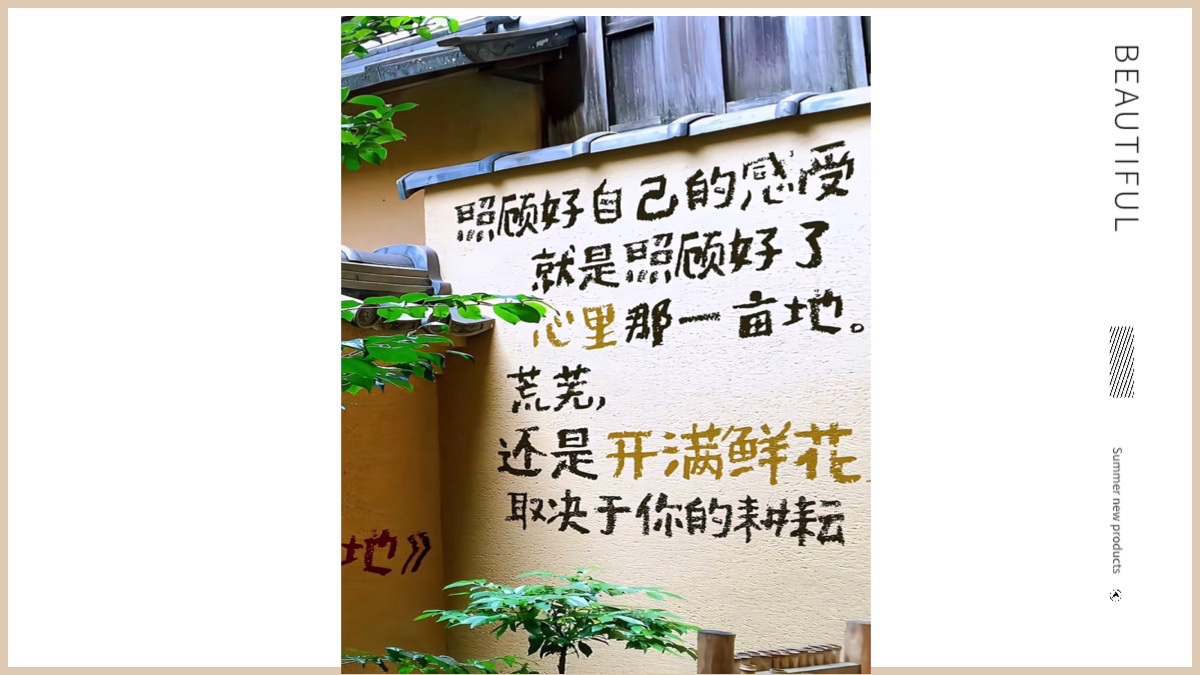 照顾好自己的感受
就是照顾好了
心里那一亩地。
荒芜，
还是开满鲜花
取决于你的耕耘
地》
BEAUTIFUL
Summer new products